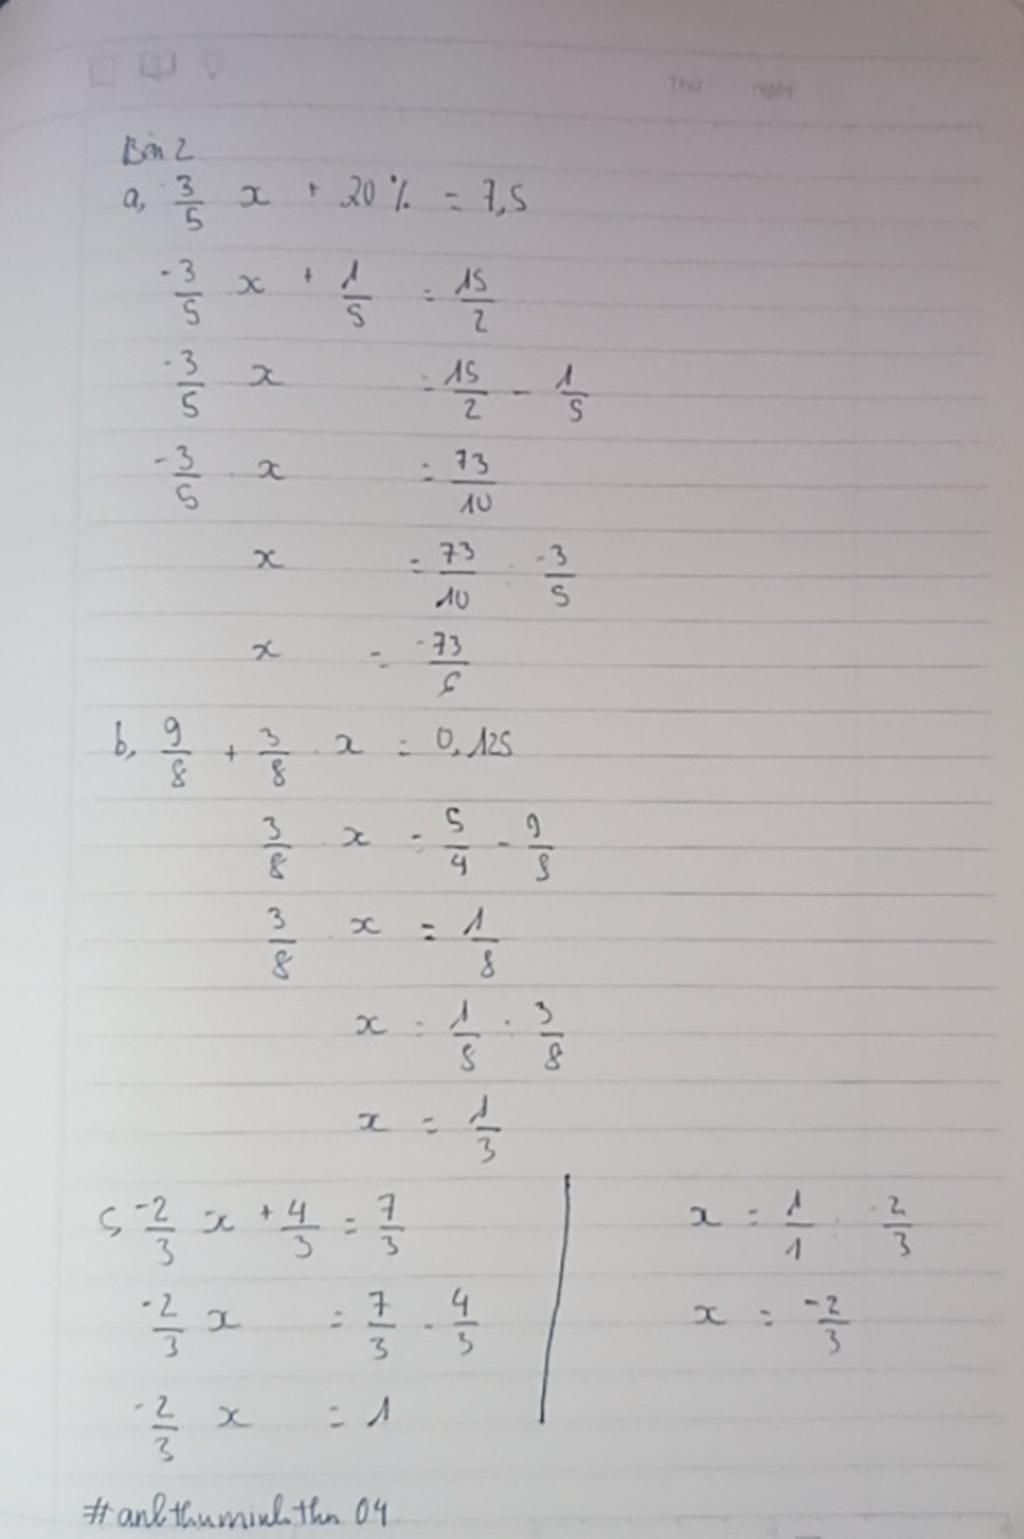 Thứ ngày
Bài 2
a, -3/5 x + 20% = 7,5
-3/5 x + 1/5 = 15/2
-3/5 x = 15/2 - 1/5
-3/5 . x = 73/10
x = 73/10 : -3/5
x = -73/6
b, 9/8 + 3/8 . x = 0,125
3/8 . x = 5/4 - 9/8
3/8 . x = 1/8
x = 1/8 : 3/8
x = 1/3
c, -2/3 x + 4/3 = 7/3
-2/3 x = 7/3 - 4/3
-2/3 x = 1
x = 1/1 : -2/3
x = -2/3